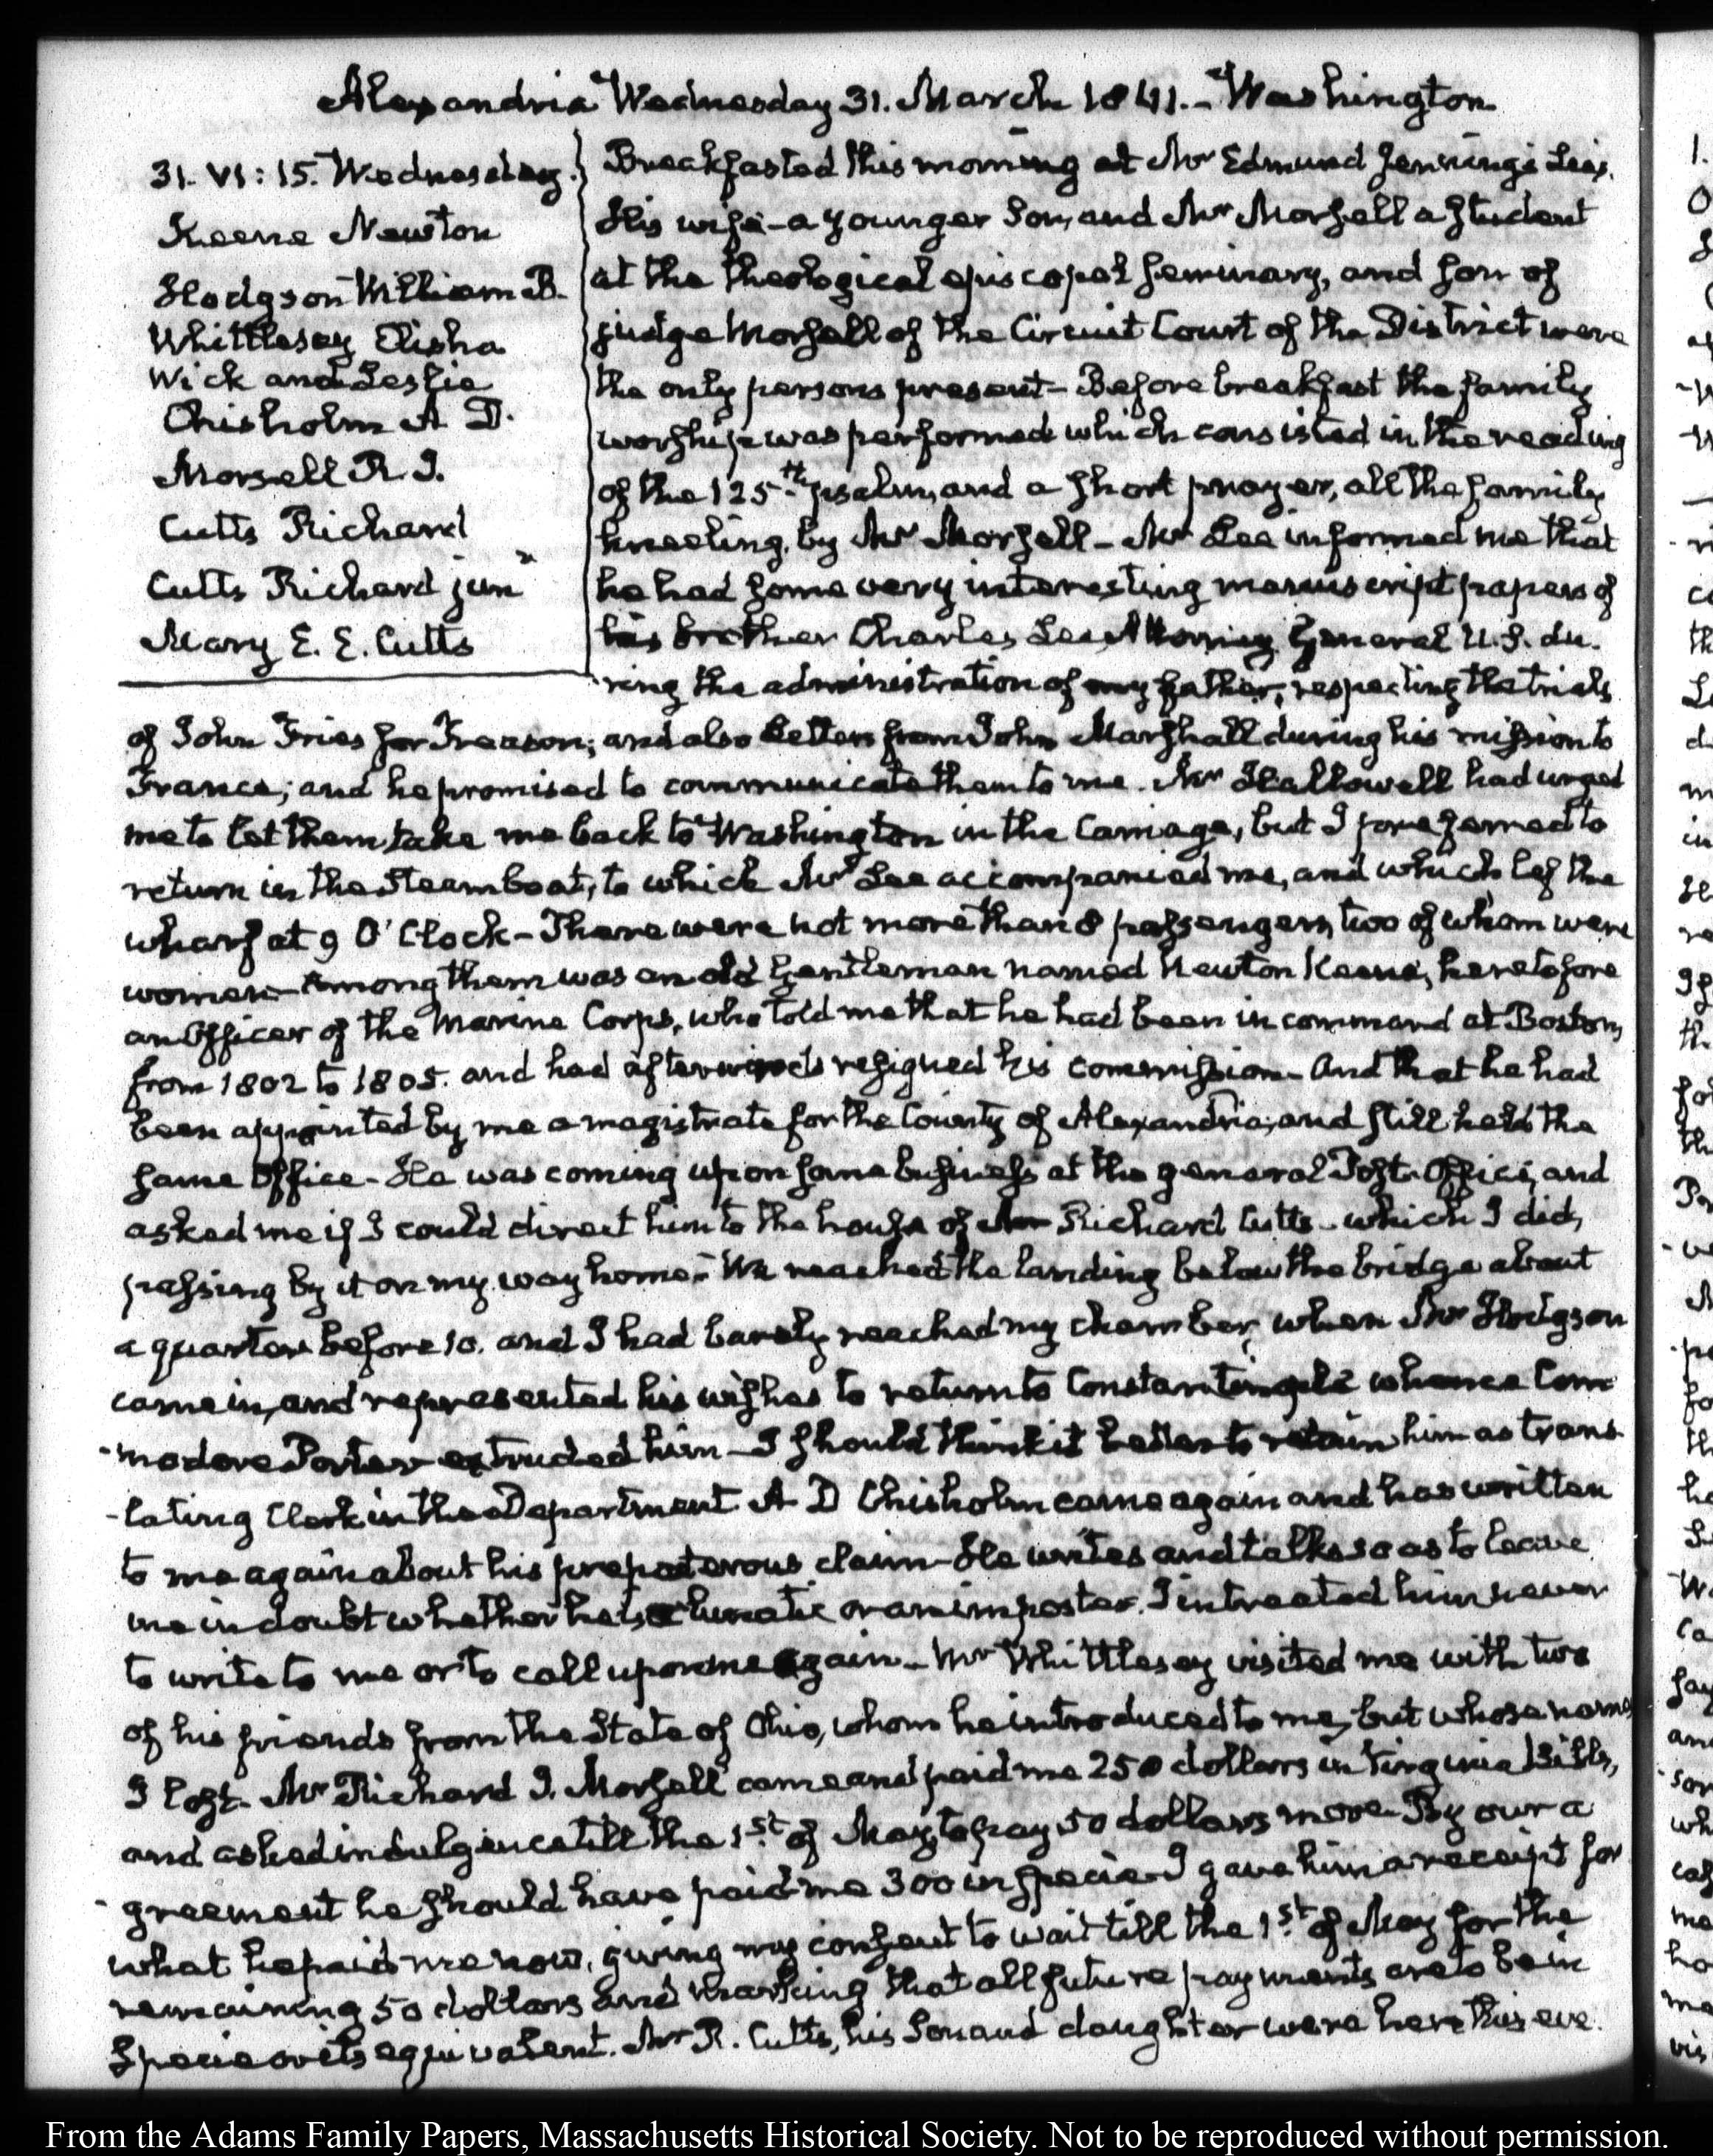 Alexandria Wednesday 31. March 1841.- Washington
31. VI: 15. Wednesday.
Keene Newton
Hodgson William B.
Whittlesey Elisha
Wick and Leslie
Chisholm A D.
Morsell R I.
Cutts Richard
Cutts Richard junr
Mary E. E. Cutts
Breakfasted this morning at Mr Edmund Jennings Lee's.
His wife - a younger Son, and Mr Morsell a student
at the theological episcopal seminary, and son of
judge Morsell of the Circuit Court of the District were
the only persons present - Before breakfast the family
worship was performed which consisted in the reading
of the 125th psalm, and a short prayer, all the family
kneeling, by Mr Morsell - Mr Lee informed me that
he had some very interesting manuscript papers of
his brother Charles Lee, Attorney General U.S. du-
ring the administration of my father, respecting the trials
of John Fries for Treason; and also letters from John Marshall during his mission to
France; and he promised to communicate them to me. Mr Hallowell had urged
me to let them take me back to Washington in the Carriage, but I preferred to
return in the Steam boat, to which Mr Lee accompanied me, and which lef the
wharf at 9 O'Clock - There were not more than 8 passengers, two of whom were
women - Among them was an old Gentleman named Newton Keene, heretofore
an Officer of the Marine Corps, who told me that he had been in command at Boston,
from 1802 to 1805. and had afterwards resigned his commission - And that he had
been appointed by me a magistrate for the County of Alexandria, and still held the
same Office - He was coming upon some business at the general Post-Office, and
asked me if I could direct him to the house of Mr Richard Cutts - which I did,
passing by it on my way home - We reached the landing below the bridge about
a quarter before 10. and I had barely reached my chamber, when Mr Hodgson
came in, and represented his wishes to return to Constantinople whence Com-
-modore Porter extruded him - I should think it better to retain him as trans-
-lating Clerk in the Department A D Chisholm came again and has written
to me again about his preposterous claim - He writes and talks so as to leave
me in doubt whether he is a lunatic or an imposter. I intreated him never
to write to me or to call upon me again - Mr Whittlesey visited me with two
of his friends from the State of Ohio, whom he introduced to me, but whose names
I lost - Mr Richard I. Morsell came and paid me 250 dollars in Virginia Bills,
and asked indulgence till the 1st of May, to pay 50 dollars more - By our a
-greement he should have paid me 300 in specie - I gave him a receipt for
what he paid me now, giving my consent to wait till the 1st of May for the
remaining 50 dollars and marking that all future payments are to be in
Specie or its equivalent. Mr R. Cutts, his Son and daughter were here this eve.
From the Adams Family Papers, Massachusetts Historical Society. Not to be reproduced without permission.